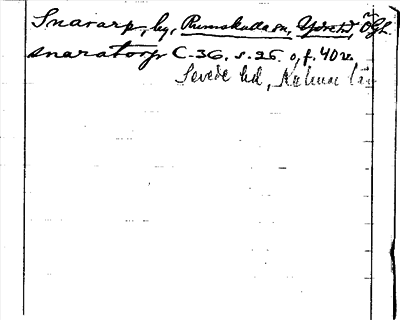 Snararp, by, Rumskulla sn, Ydre hd, ÖGL.
snaratorp C-36. s. 26. o, f. 40 v.
Sevede hd, Kalmar län